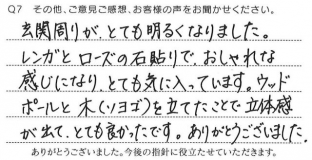 Q7 その他、ご意見ご感想、お客様の声をお聞かせください。
玄関周りが、とても明るくなりました。
レンガとローズの石貼りで、おしゃれな
感じになり、とても気に入っています。ウッド
ポールと木(ソヨゴ)を立てたことで立体感
が出て、とても良かったです。ありがとうございました。
ありがとうございました。今後の指針に役立たせていただきます。